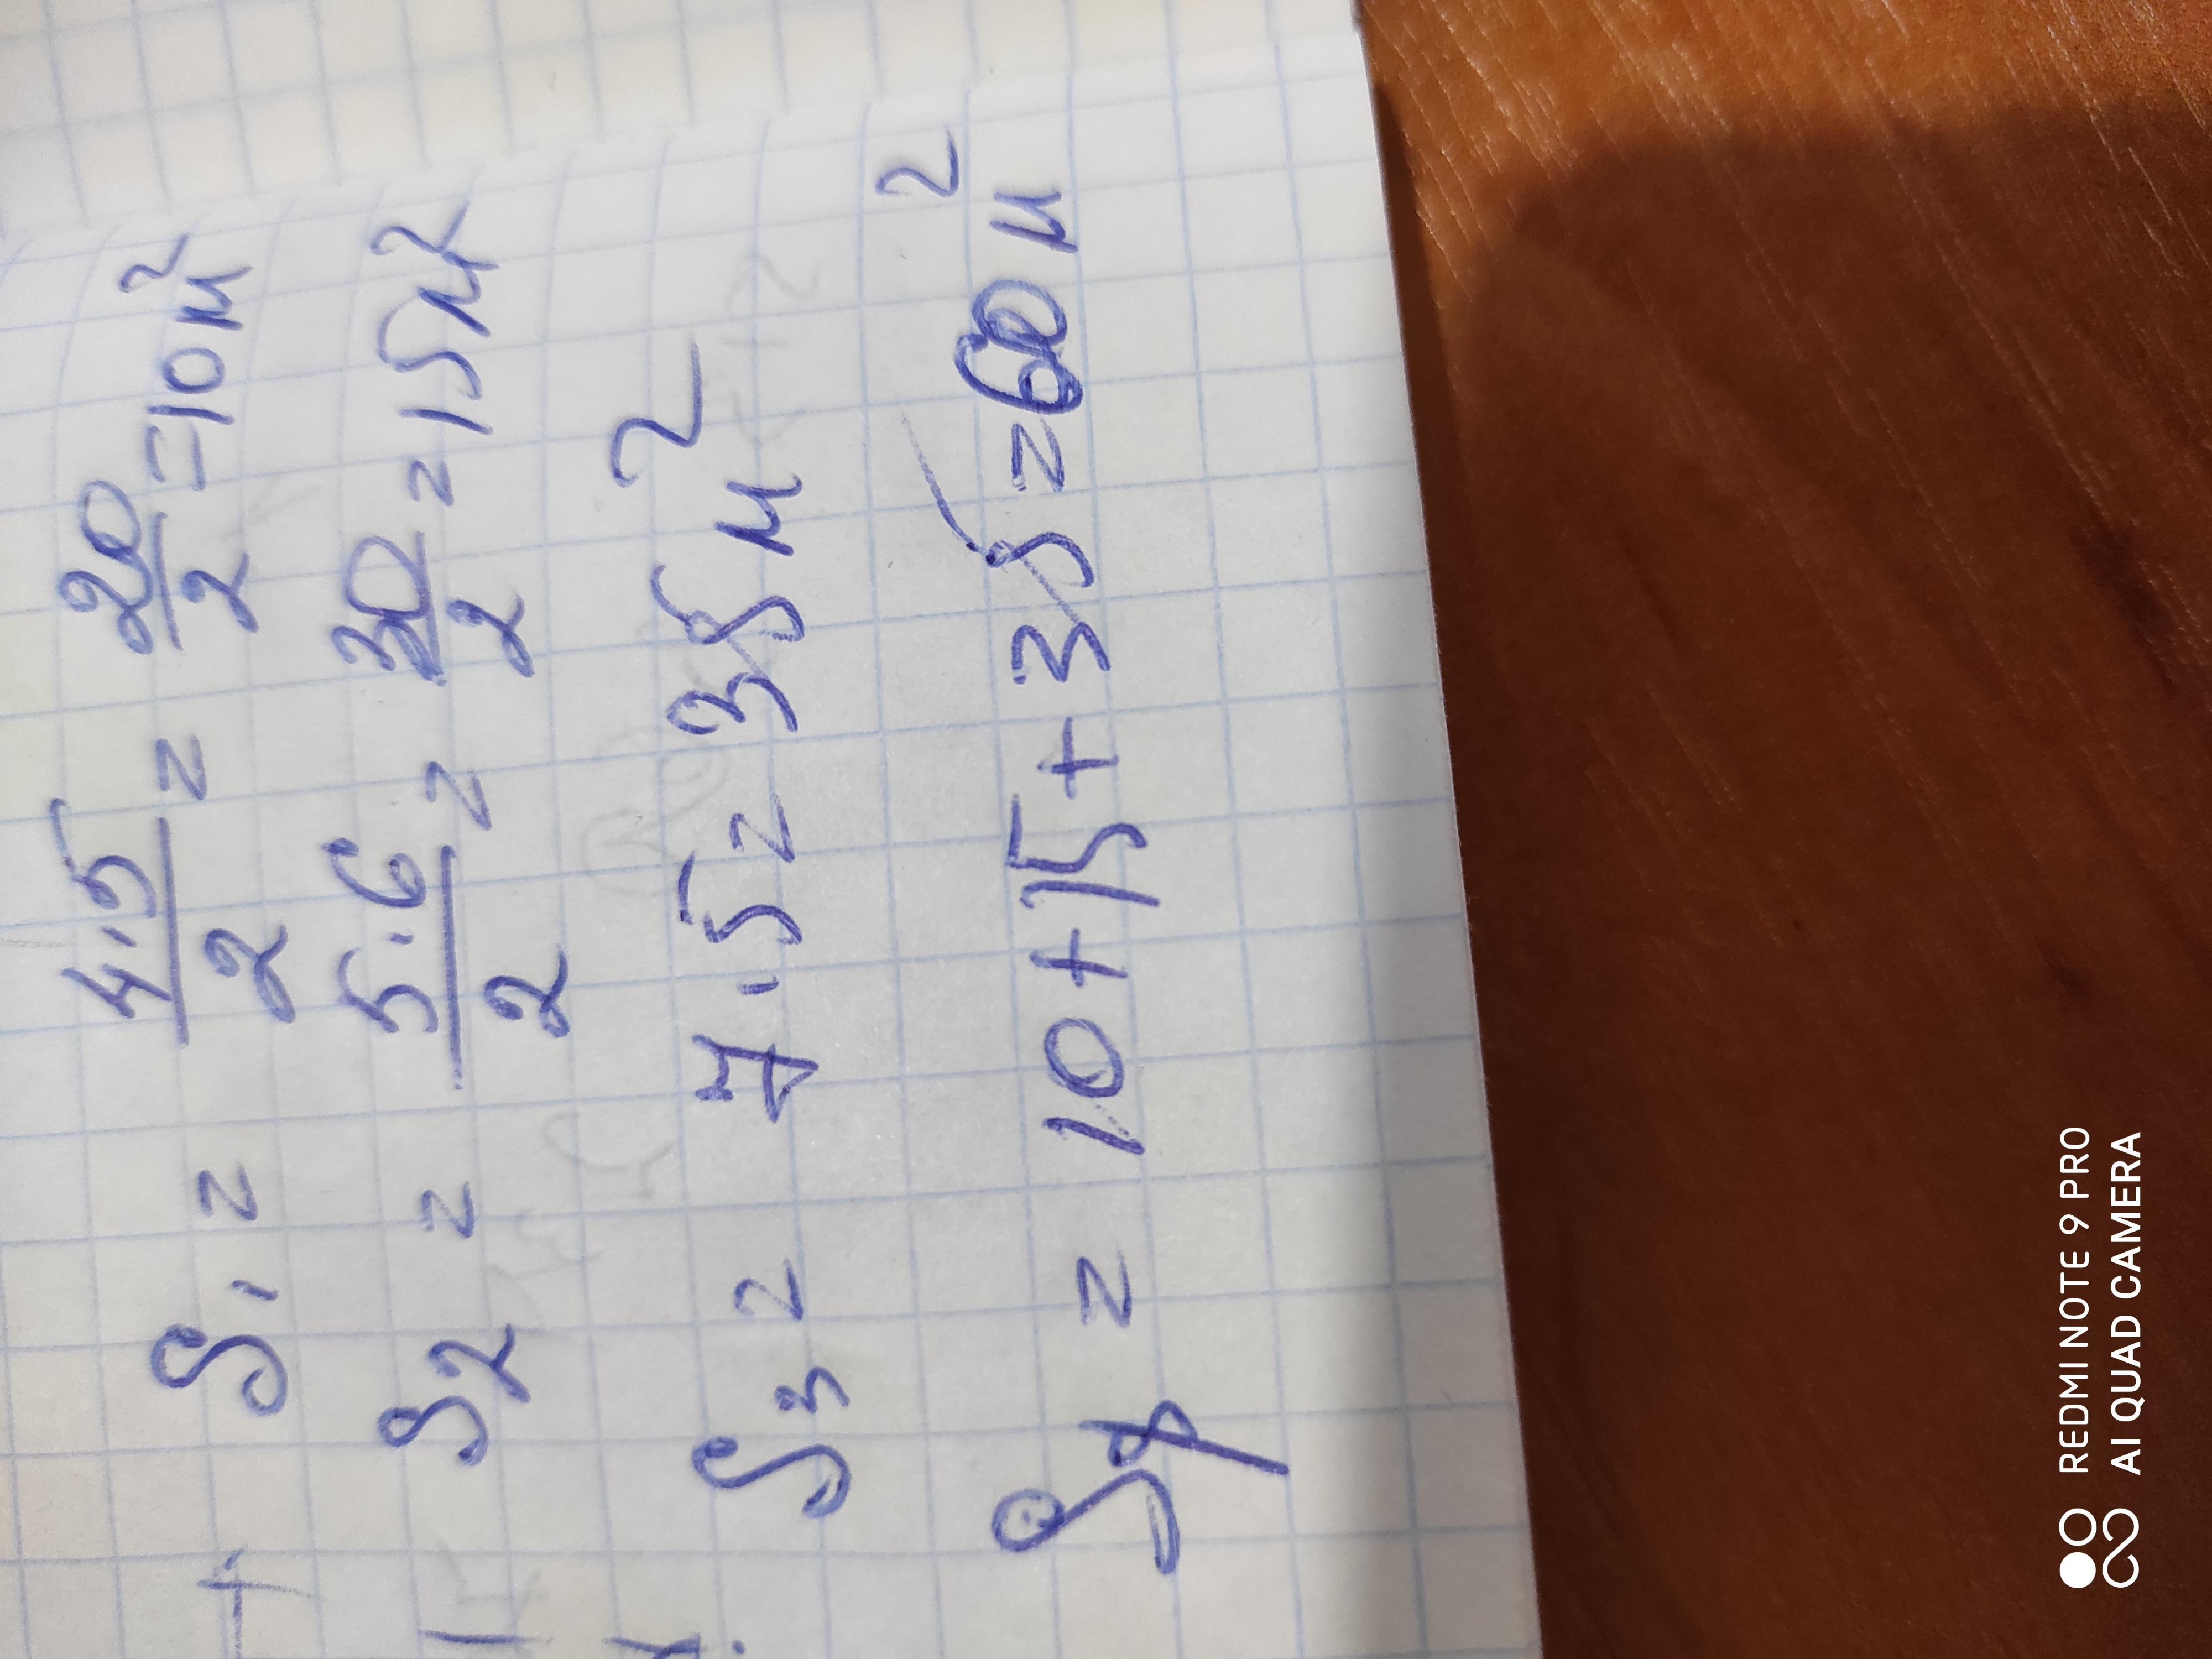 S₁ = 4·5/2 = 20/2 = 10м²
S₂ = 5·6/2 = 30/2 = 15м²
S₃ = 7·5 = 35м²
Sф = 10+15+35=60м²
REDMI NOTE 9 PRO
AI QUAD CAMERA